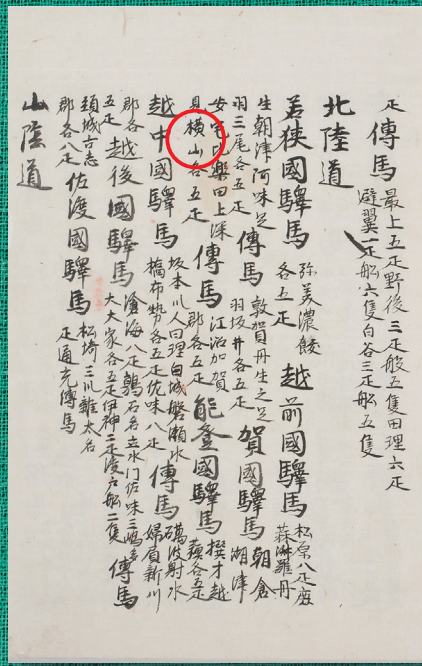 疋傳馬最上五疋野後三疋舩五隻由理六疋避翼一疋舩六隻白谷三疋舩五隻
北陸道
若狹國驛馬弥美濃飯各五疋越前國驛馬松原八疋蒜淋羅丹
生朝津阿味足羽三尾各五疋傳馬敦賀丹生之足羽坂井各五疋賀國驛馬朝倉潮津
女宅比樂田上深見横山各五疋傳馬江沼加賀郡各五疋能登國驛馬撰才越蘓各五疋
越中國驛馬坂本川人曰理白城磐瀬水橋布勢各五疋佐味八疋傳馬礪波射水婦負新川
郡各五疋越後國驛馬滄海八疋鶉石名立水門佐味三嶋多大大家各五疋伊神二疋渡戸舩二隻傳馬
頚城古志郡各八疋佐渡國驛馬松埼三川雜太各疋通充傳馬
山陰道